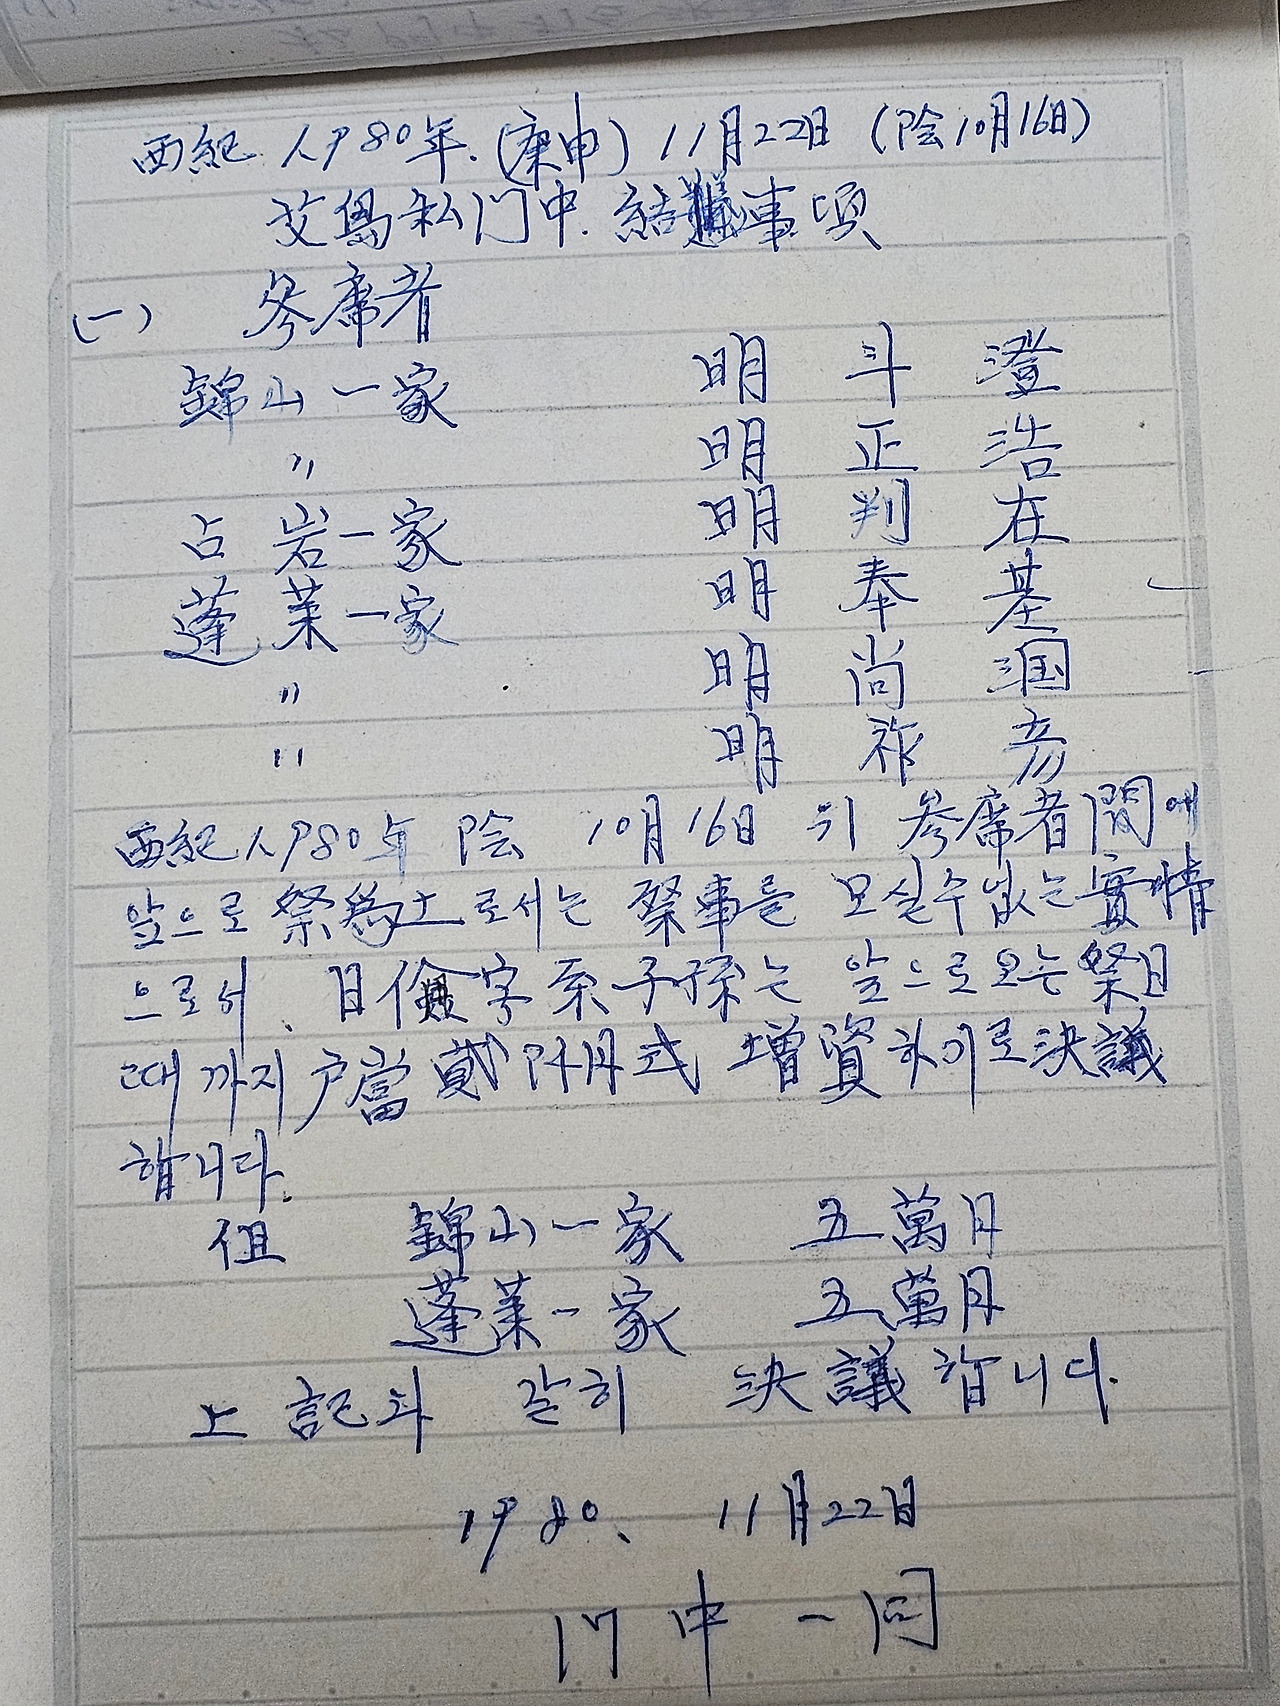 西紀 1980年.(庚申) 11月22日 (陰10月16日)
私门中. 結議事項
(一) 參席者
錦山一家 明 斗 澄
〃 明 正 浩
占 岩一家 明 判 在
蓬 莱一家 明 奉 基
〃 明 尚 洄
〃 明 祚 彦
西紀 1980年 陰 10月 16日 위 參席者間에
앞으로 祭爲土로서는 祭事를 모실수 없는 實情
으로서、 字 系 子孫는 앞으로 오는 祭日
때 까지 户當 貳阡円式 增資하이로 決議
합니다.
但 錦山一家 五萬円
蓬莱一家 五萬円
上記와 같히 決議합니다.
1980、 11月22日
门 中 一 同